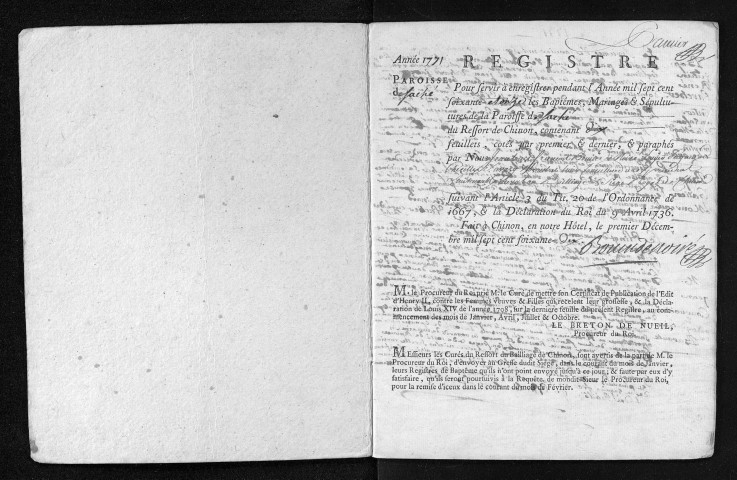 Année 1771 REGISTRE
PAROISSE
de Saché
Pour servir à enregistrer pendant l'Année mil sept cent
soixante onze les Baptêmes, Mariages & Sépultu-
tures de la Paroisse de Saché
du Ressort de Chinon, contenant dix
feuillets, cotés par premier & dernier, & paraphés
par Nous
suivant l'Article 3 du Tit. 20 de l'Ordonnance de
1667, & la Déclaration du Roi du 9 Avril 1736.
Fait à Chinon, en notre Hôtel, le premier Décem-
bre mil sept cent soixante Dix
M. le Procureur du Roi prie M. le Curé de mettre son Certificat de Publication de l'Edit
d'Henry II, contre les Femmes Veuves & Filles qui recelent leur grossesse, & la Décla-
ration de Louis XIV de l'année 1708, sur la derniere feuille du présent Registre, au com-
mencement des mois de Janvier, Avril, Juillet & Octobre.
LE BRETON DE NUEIL,
Procureur du Roi.
MEssieurs les Curés du Ressort du Bailliage de Chinon, sont avertis de la part de M. le
Procureur du Roi, d'envoyer au Greffe dudit Siége, dans le courant du mois de Janvier,
leurs Registres de Baptême qu'ils n'ont point envoyé jusqu'à ce jour; & faute par eux d'y
satisfaire, qu'ils seront poursuivis à la Requête de mondit Sieur le Procureur du Roi,
pour la remise d'iceux dans le courant du mois de Février.